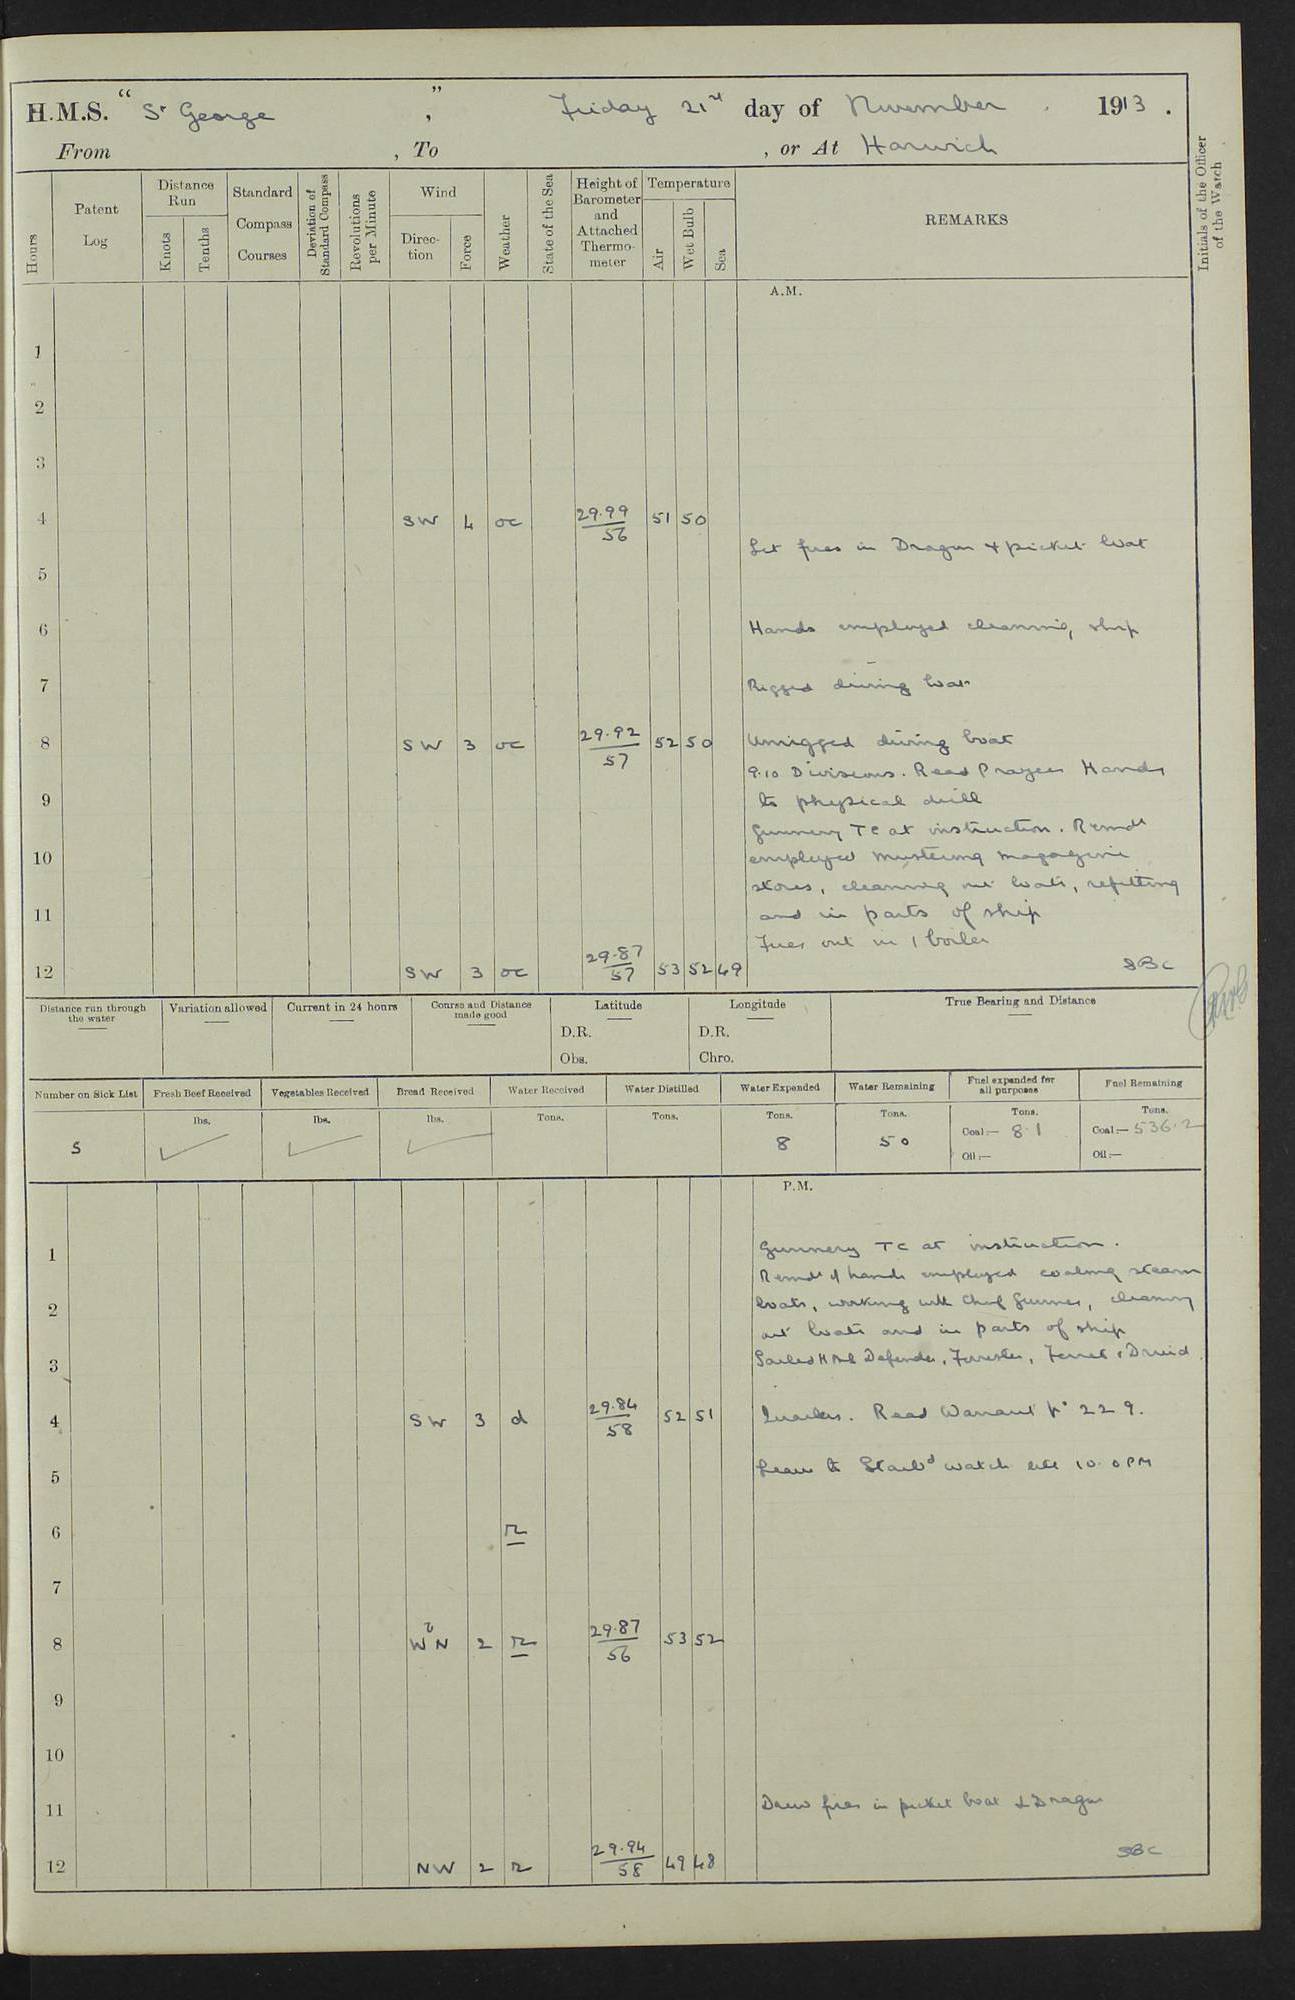 H.M.S. “ St George ” , Friday 21st day of November . 1913 .
From , To , or At Harwich
Hours
Patent Log
Distance Run
Knots
Tenths
Standard Compass Courses
Deviation of Standard Compass
Revolutions per Minute
Wind
Direction
Force
Weather
State of the Sea
Height of Barometer and Attached Thermometer
Temperature
Air
Wet Bulb
Sea
REMARKS
Initials of the Officer of the Watch
A.M.
1
2
3
4 SW 4 oc 29.99/56 51 50
Lit fires in Dragon & picket boat
5
6 Hands employed cleaning ship
7 Rigged diving boat
8 SW 3 oc 29.92/57 52 50 Unrigged diving boat
9.10 Divisions. Read Prayers Hands
9 to physical drill
Gunnery TC at instruction. Remdr
10 employed mustering magazine
stores, cleaning out boats, refitting
11 and in parts of ship
Fires out in 1 boiler
12 SW 3 oc 29.87/57 53 52 49 SBC
Distance run through the water
Variation allowed
Current in 24 hours
Course and Distance made good
Latitude
D.R.
Obs.
Longitude
D.R.
Chro.
True Bearing and Distance
Number on Sick List
Fresh Beef Received
Vegetables Received
Bread Received
Water Received
Water Distilled
Water Expended
Water Remaining
Fuel expended for all purposes
Fuel Remaining
lbs. lbs. lbs. Tons. Tons. Tons. Tons. Tons. Tons.
5 8 50 Coal:— 8.1 Coal:— 536.2
Oil:— Oil:—
P.M.
1 Gunnery TC at instruction.
Remdr of hands employed coaling steam
2 boats, working with Chief Gunner, cleaning
out boats and in parts of ship
3 Sailed HMS Defender, Forester, Ferret & Druid
4 SW 3 d 29.84/58 52 51 Quarters. Read Warrant No 229.
5 Leave to Starbd watch till 10.0 PM
6 r
7
8 W b N 2 r 29.87/56 53 52
9
10
11 Drew fires in picket boat & Dragon
12 NW 2 r 29.94/58 49 48 SBC